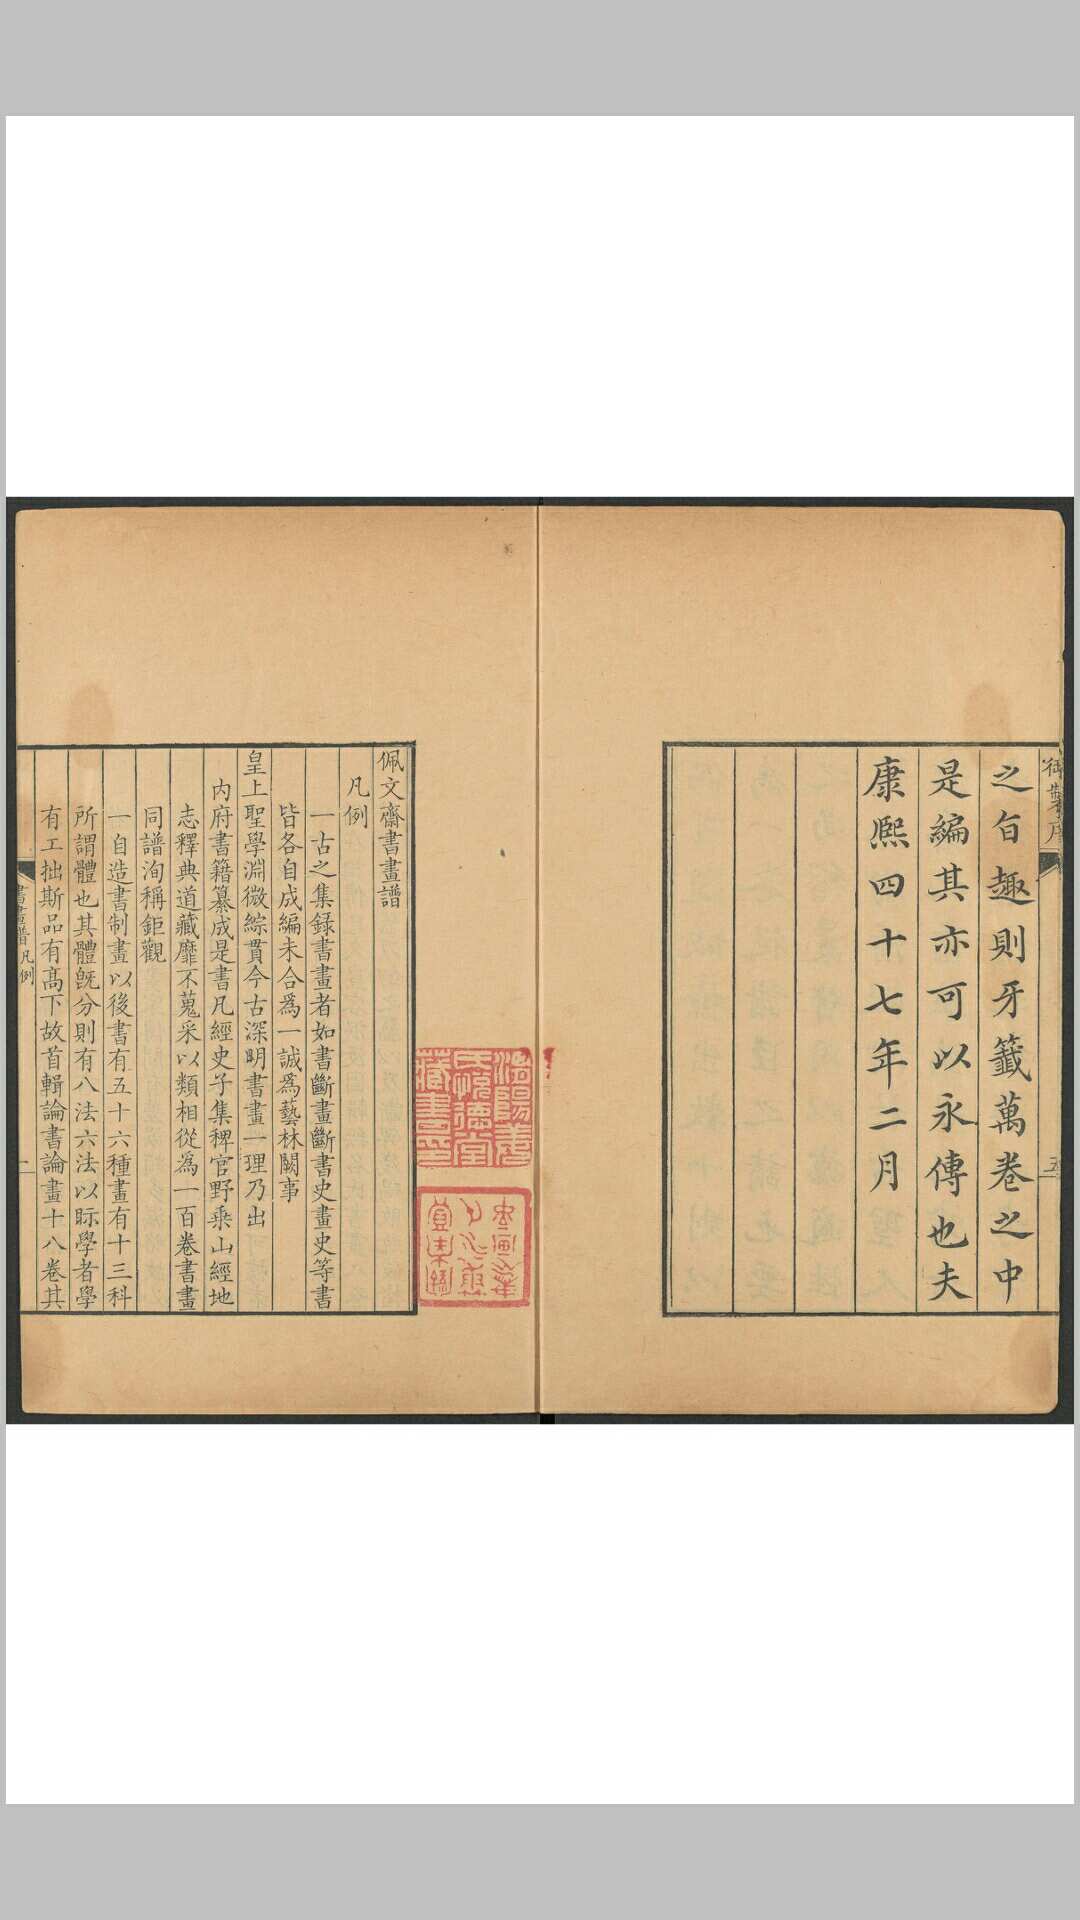 御製序
之旨趣則牙籤萬卷之中
是編其亦可以永傳也夫
康熙四十七年二月
五
佩文齋書畫譜
凡例
一古之集錄書畫者如書斷畫斷書史畫史等書
皆各自成編未合爲一誠爲藝林闕事
皇上聖學淵微綜貫今古深明書畫一理乃出
內府書籍纂成是書凡經史子集稗官野乘山經地
志釋典道藏靡不蒐采以類相從爲一百卷書畫
同譜洵稱鉅觀
一自造書制畫以後書有五十六種畫有十三科
所謂體也其體旣分則有八法六法以眎學者學
有工拙斯品有高下故首輯論書論畫十八卷其
書畫譜凡例
一